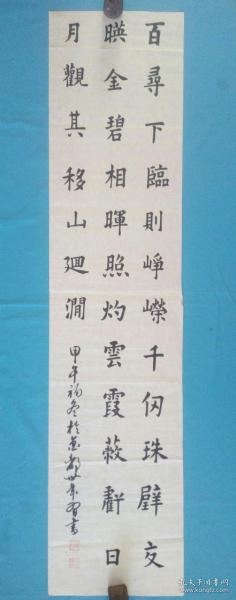 百尋下臨則崢嶸千仞珠壁交
暎金碧相暉照灼雲霞蔽虧日
月觀其移山廻澗
甲午初冬於
書